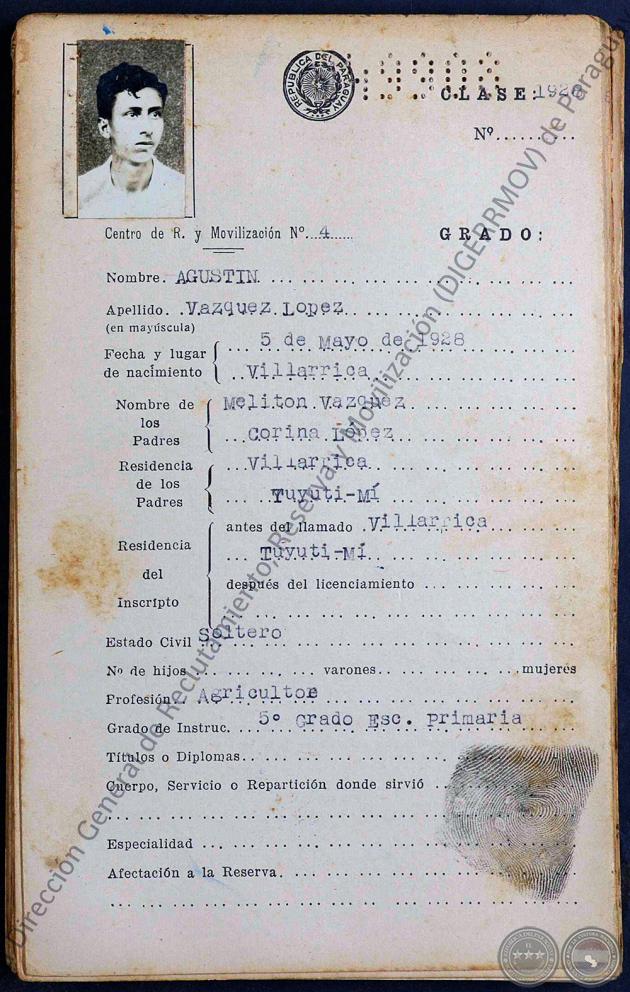 REPUBLICA DEL PARAGUAY
CLASE: 1928
Nº..........
Centro de R. y Movilización Nº...4......
GRADO:
Nombre. AGUSTIN
Apellido. Vazquez Lopez
(en mayúscula)
Fecha y lugar de nacimiento
5 de Mayo de 1928
Villarrica
Nombre de los Padres
Meliton Vazquez
Corina López
Residencia de los Padres
Villarrica
Tuyuti-Mí
Residencia del Inscripto
antes del llamado Villarrica
Tuyuti-Mí
después del licenciamiento
Estado Civil Soltero
Nº de hijos varones mujeres
Profesión Agricultor
Grado de Instruc. 5º Grado Esc. primaria
Títulos o Diplomas
Cuerpo, Servicio o Repartición donde sirvió
Especialidad
Afectación a la Reserva
Dirección General de Reclutamiento, Reserva y Movilización (DIGERRMOV) de Paragu